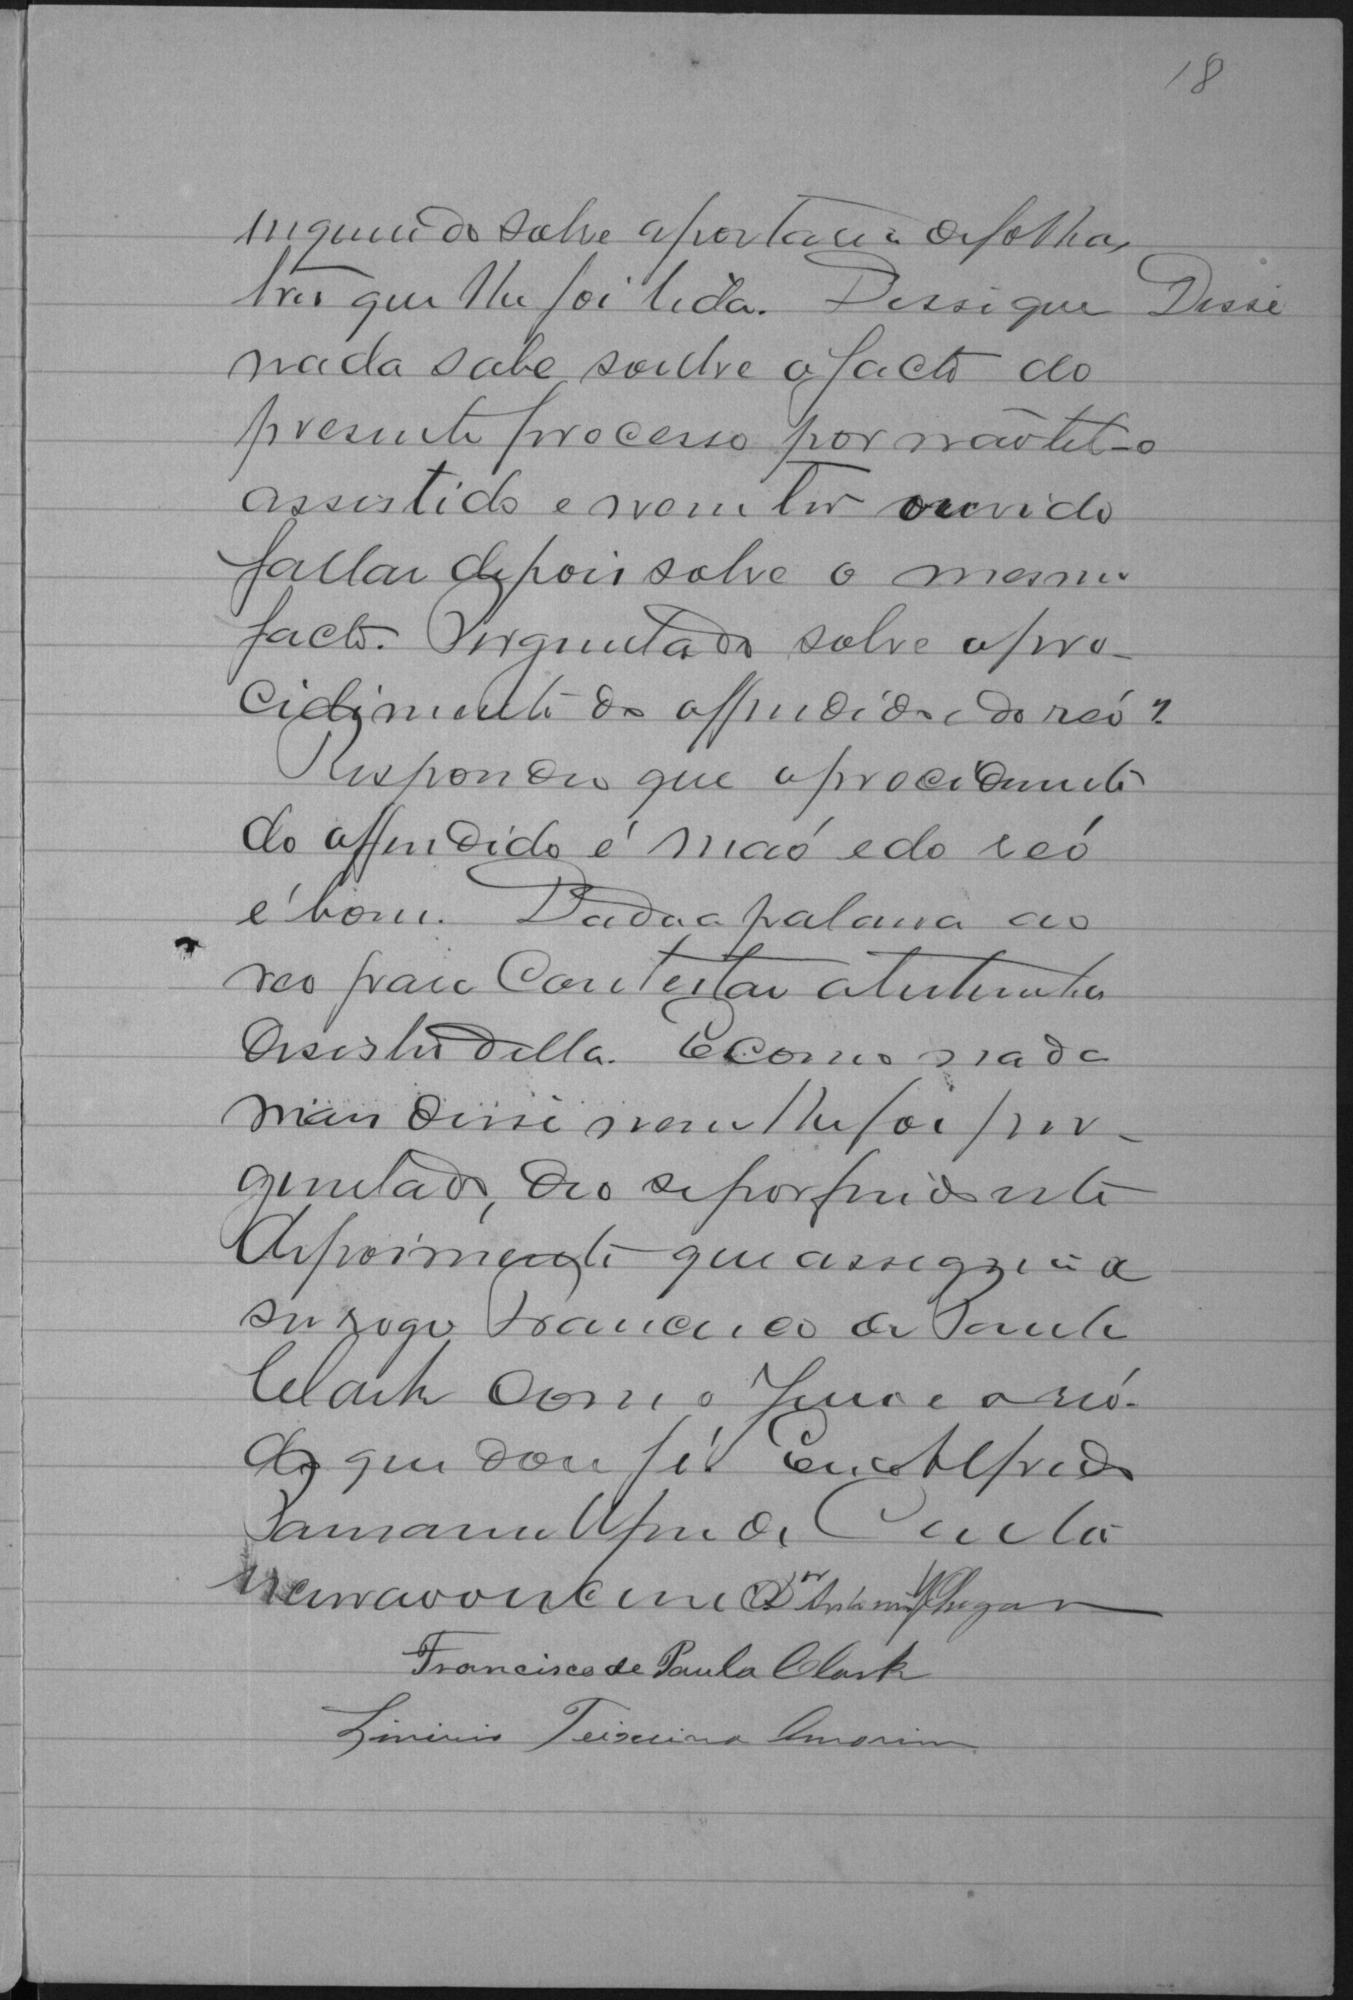 18
inquirido sobre a portaria de folhas
tres que lhe foi lida. Disse que Disse
nada sabe soubre o facto do
presente processo por não tel-o
assistido e nem ter ouvido
fallar depois sobre o mesmo
facto. Perguntado sobre o pro-
cidimento do offendido e do réo?
Respondeu que o procidimento
do offendido é máo e do reó
é bom. Dada a palavra ao
reo para contestar a testemunha
desistiu della. E como nada
mais disse nem lhe foi per-
guntado, deo se por findo este
depoimento que assegna a
seu rogo Francisco de Paula
Clark com o Juiz e o reó.
do que dou fé. Eu Alfredo
de Costa
escrevi. Dor Antonio
Francisco de Paula Clark
Teixeira Amorim